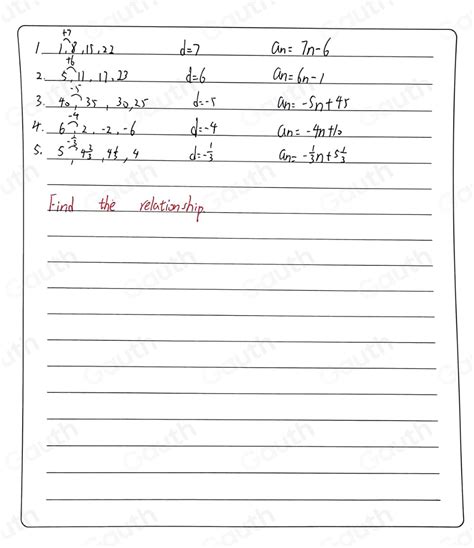 +7
1. 1, 8, 15, 22 d=7 an= 7n-6
+6
2. 5, 11, 17, 23 d=6 an= 6n-1
-5
3. 40, 35, 30, 25 d=-5 an= -5n+45
-4
4. 6, 2, -2, -6 d=-4 an= -4n+10
-1/3
5. 5, 4 2/3, 4 1/3, 4 d=-1/3 an= -1/3n+5 1/3
Find the relationship.